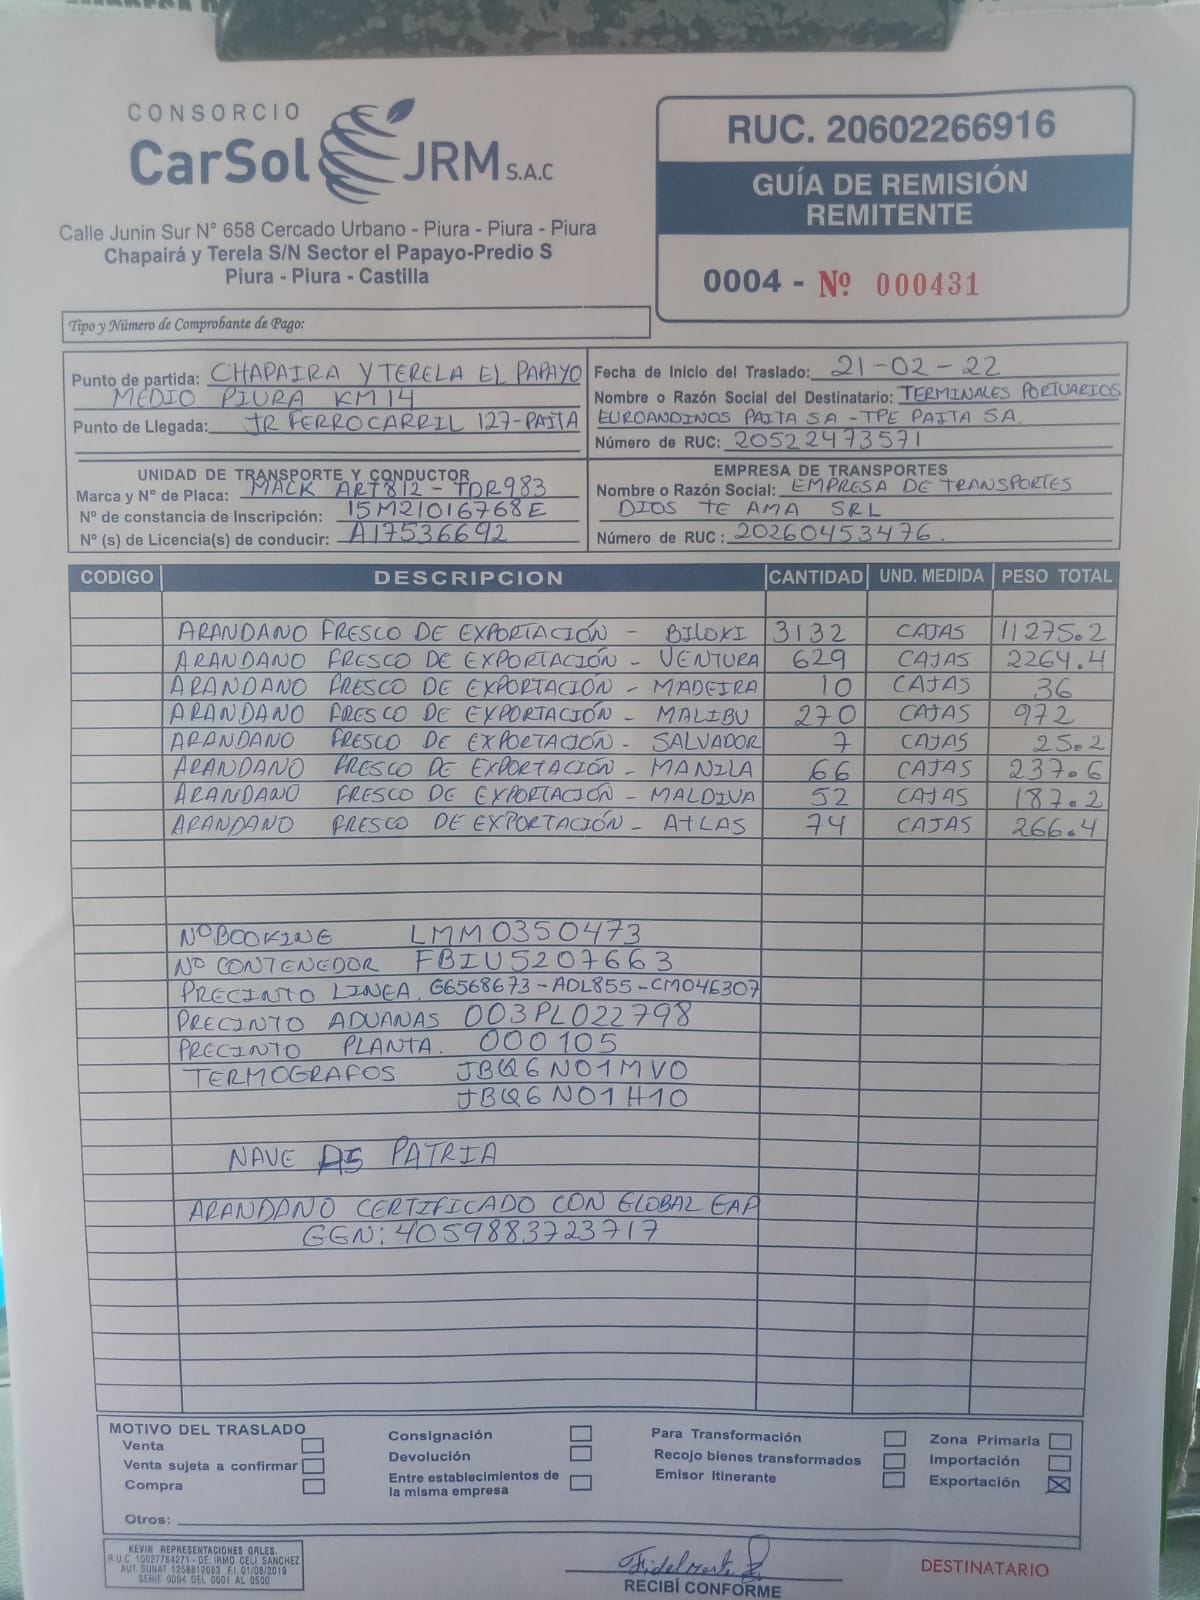 CONSORCIO
CarSol JRM S.A.C
Calle Junin Sur N° 658 Cercado Urbano - Piura - Piura - Piura
Chapairá y Terela S/N Sector el Papayo-Predio S
Piura - Piura - Castilla
RUC. 20602266916
GUÍA DE REMISIÓN
REMITENTE
0004 - Nº 000431
Tipo y Número de Comprobante de Pago:
Punto de partida: CHAPAIRA Y TERELA EL PAPAYO
MEDIO PIURA KM14
Punto de Llegada: JR FERROCARRIL 127-PAITA
Fecha de Inicio del Traslado: 21-02-22
Nombre o Razón Social del Destinatario: TERMINALES PORTUARIOS
EUROANDINOS PAITA SA - TPE PAITA SA.
Número de RUC: 20522473571
UNIDAD DE TRANSPORTE Y CONDUCTOR
Marca y Nº de Placa: MACK ART812 - TDR983
Nº de constancia de Inscripción: 15M21016768E
Nº (s) de Licencia(s) de conducir: A17536692
EMPRESA DE TRANSPORTES
Nombre o Razón Social: EMPRESA DE TRANSPORTES
DIOS TE AMA SRL
Número de RUC : 20260453476.
CODIGO DESCRIPCION CANTIDAD UND. MEDIDA PESO TOTAL
ARANDANO FRESCO DE EXPORTACIÓN - BILOXI 3132 CAJAS 11275.2
ARANDANO FRESCO DE EXPORTACIÓN - VENTURA 629 CAJAS 2264.4
ARANDANO FRESCO DE EXPORTACIÓN - MADEIRA 10 CAJAS 36
ARANDANO FRESCO DE EXPORTACIÓN - MALIBU 270 CAJAS 972
ARANDANO FRESCO DE EXPORTACIÓN - SALVADOR 7 CAJAS 25.2
ARANDANO FRESCO DE EXPORTACIÓN - MANILA 66 CAJAS 237.6
ARANDANO FRESCO DE EXPORTACIÓN - MALDIVA 52 CAJAS 187.2
ARANDANO FRESCO DE EXPORTACIÓN - ATLAS 74 CAJAS 266.4
Nº BOOKING LMM0350473
Nº CONTENEDOR FBIU5207663
PRECINTO LINEA. G6568673-ADL855-CM046307
PRECINTO ADUANAS 003PL022798
PRECINTO PLANTA. 000105
TERMOGRAFOS JBQ6N01MV0
JBQ6N01H10
NAVE AS PATRIA
ARANDANO CERTIFICADO CON GLOBAL GAP
GGN: 4059883723717
MOTIVO DEL TRASLADO
Venta
Venta sujeta a confirmar
Compra
Consignación
Devolución
Entre establecimientos de
la misma empresa
Para Transformación
Recojo bienes transformados
Emisor Itinerante
Zona Primaria
Importación
Exportación X
Otros:
KEVIN REPRESENTACIONES GRLES.
R.U.C. 10027764271 - DE: IRMO CELI SANCHEZ
AUT. SUNAT 1256812083 F.I. 01/06/2019
SERIE 0004 DEL 0001 AL 0500
RECIBÍ CONFORME
DESTINATARIO